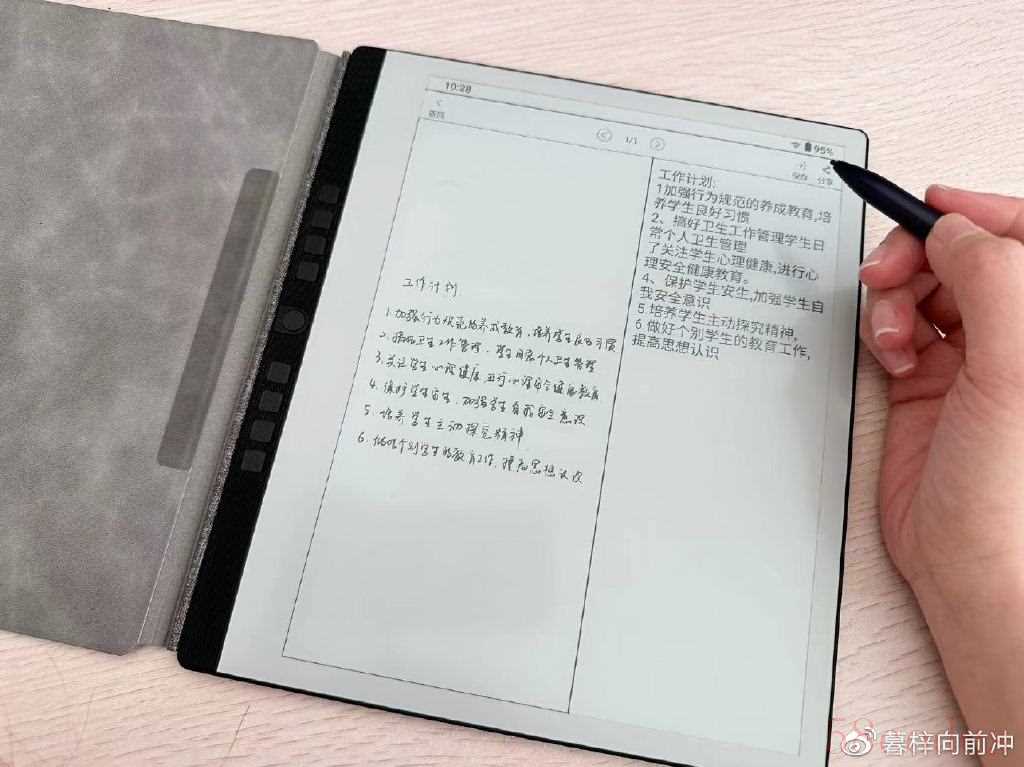 10:28
95%
返回
1/1
保存 分享
工作计划
1.加强行为规范的养成教育,培养学生良好习惯
2.搞好卫生工作管理,学生日常个人卫生管理
3.关注学生心理健康,进行心理安全健康教育
4.保护学生安生,加强学生自我安全意识
5.培养学生主动探究精神
6.做好个别学生的教育工作,提高思想认识
工作计划:
1加强行为规范的养成教育,培
养学生良好习惯
2、搞好卫生工作管理学生日
常个人卫生管理
了关注学生心理健康,进行心
理安全健康教育。
4、保护学生安生,加强学生自
我安全意识
5.培养学生主动探究精神,
6.做好个别学生的教育工作,
提高思想认识
暮梓向前冲